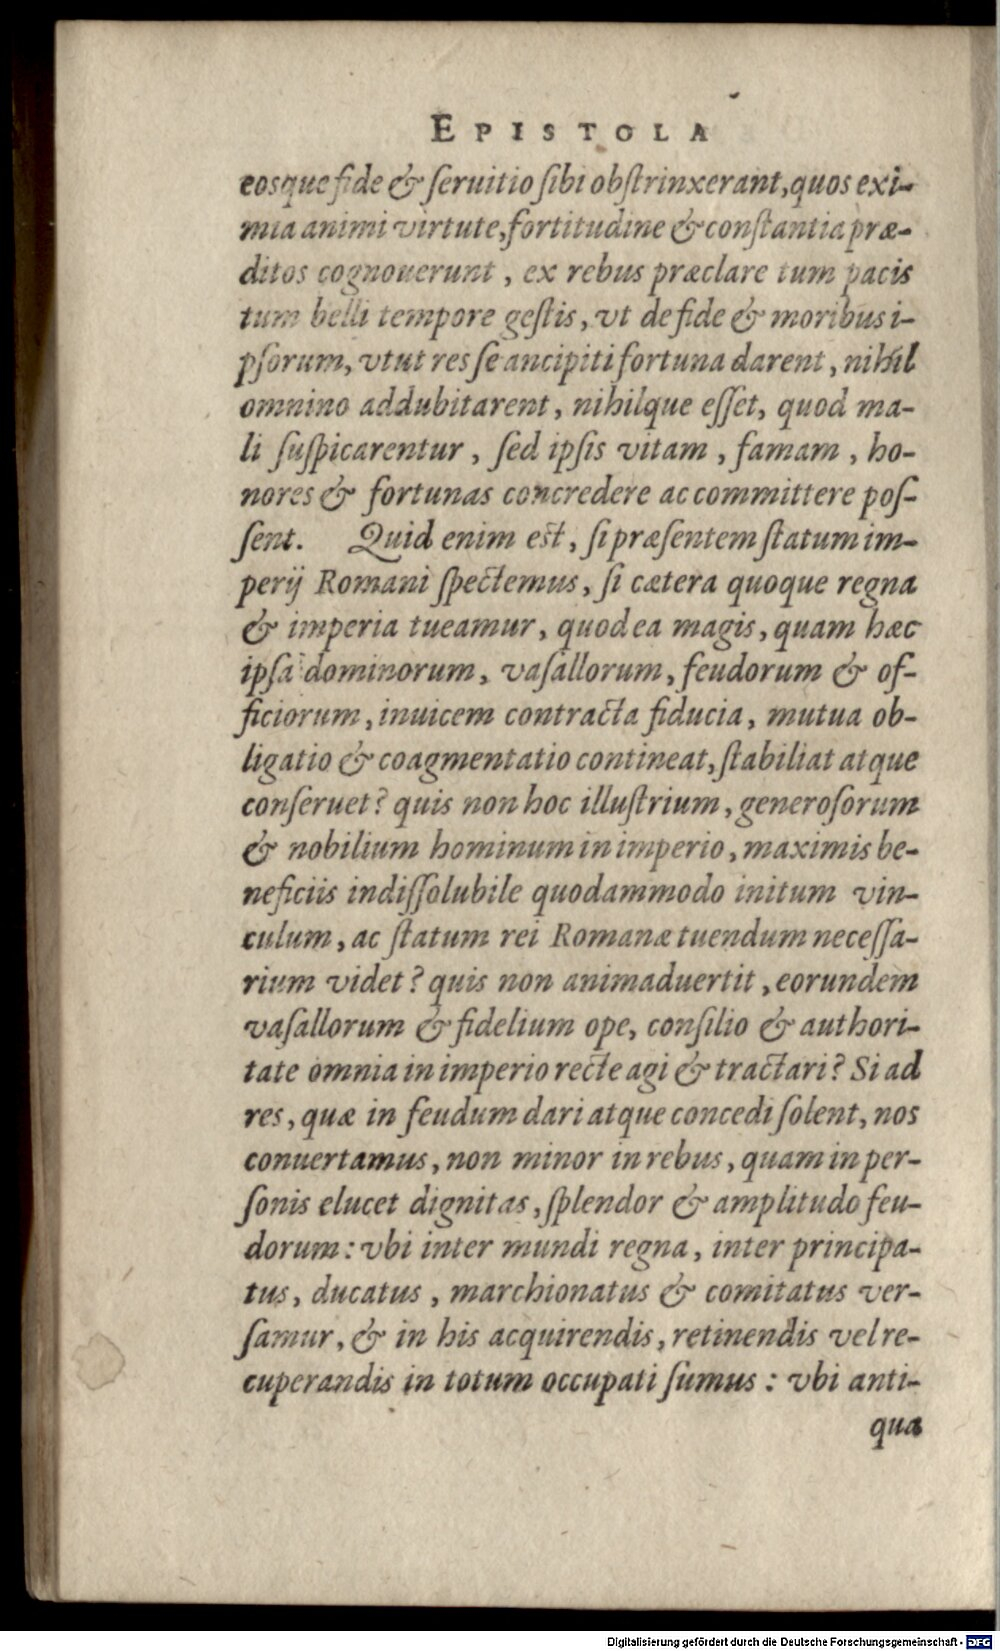 EPISTOLA
eosque fide & ſeruitio ſibi obſtrinxerant, quos exi-
mia animi virtute, fortitudine & conſtantia præ-
ditos cognouerunt, ex rebus præclare tum pacis
tum belli tempore geſtis, vt de fide & moribus i-
pſorum, vtut res ſe ancipiti fortuna darent, nihil
omnino addubitarent, nihilque eſſet, quod ma-
li ſuſpicarentur, ſed ipſis vitam, famam, ho-
nores & fortunas concredere ac committere poſ-
ſent. Quid enim eſt, ſi præſentem ſtatum im-
perij Romani ſpectemus, ſi cætera quoque regna
& imperia tueamur, quod ea magis, quam hæc
ipſa dominorum, vaſallorum, feudorum & of-
ficiorum, inuicem contracta fiducia, mutua ob-
ligatio & coagmentatio contineat, ſtabiliat atque
conſeruet? quis non hoc illuſtrium, generoſorum
& nobilium hominum in imperio, maximis be-
neficiis indiſſolubile quodammodo initum vin-
culum, ac ſtatum rei Romanæ tuendum neceſſa-
rium videt? quis non animaduertit, eorundem
vaſallorum & fidelium ope, conſilio & authori-
tate omnia in imperio recte agi & tractari? Si ad
res, quæ in feudum dari atque concedi ſolent, nos
conuertamus, non minor in rebus, quam in per-
ſonis elucet dignitas, ſplendor & amplitudo feu-
dorum: vbi inter mundi regna, inter principa-
tus, ducatus, marchionatus & comitatus ver-
ſamur, & in his acquirendis, retinendis vel re-
cuperandis in totum occupati ſumus: vbi anti-
qua
Digitalisierung gefördert durch die Deutsche Forschungsgemeinschaft - DFG